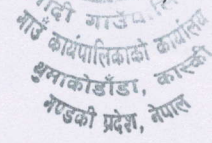 गाउँ कार्यपालिकाको कार्यालय
थुमाकोडाँडा, कास्की
गण्डकी प्रदेश, नेपाल